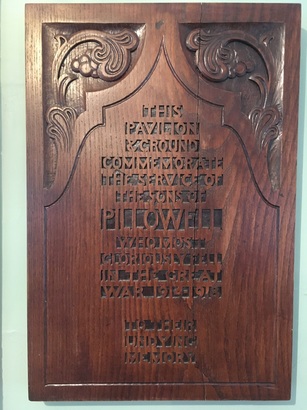 THIS
PAVILION
& GROUND
COMMEMORATE
THE SERVICE OF
THE SONS OF
PILLOWELL
WHO MOST
GLORIOUSLY FELL
IN THE GREAT
WAR 1914-1918
TO THEIR
UNDYING
MEMORY